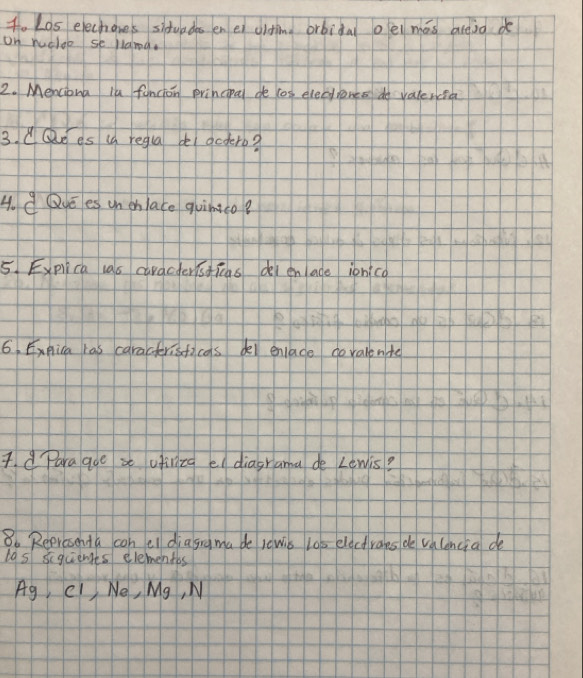 1. Los electrones situados en el ultimo orbidal o el más alejo de
un nucleo se llama.
2. Menciona la función principal de los electrones de valencia
3. ¿Qué es la regla del octeto?
4. ¿Qué es un enlace quimico?
5. Explica las caracteristicas del enlace ionico
6. Explica las caracteristicas del enlace covalente
7. ¿Para que se utiliza el diagrama de Lewis?
8. Representa con el diagrama de lewis los electrones de valencia de
las siguientes elementos
Ag, Cl, Ne, Mg, N